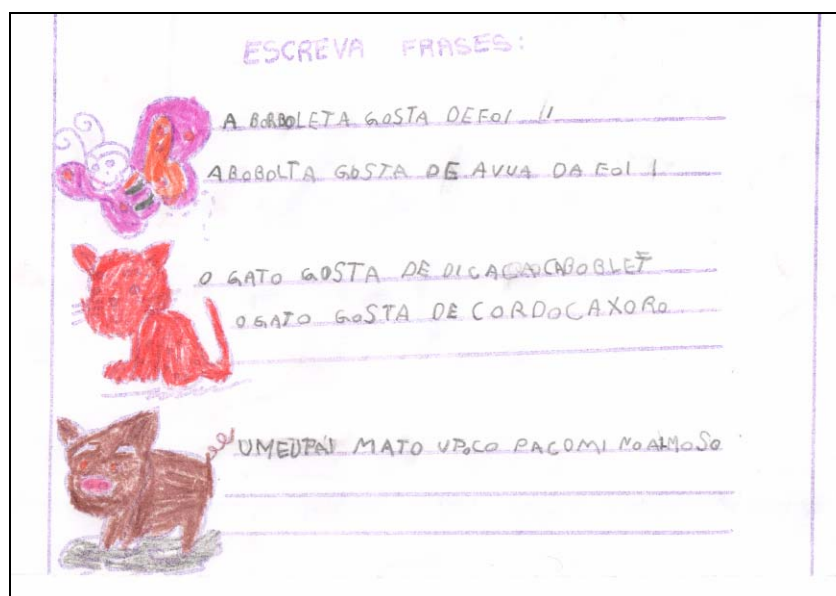 ESCREVA FRASES:
A BORBOLETA GOSTA DEFOI !!
ABOBOLTA GOSTA DE AVUA DA FOI !
O GATO GOSTA DE DICAÇACABOBLET
O GATO GOSTA DE CORDOCAXORO
UMEUPAI MATO UPOCO PACOMI NOALMOSO